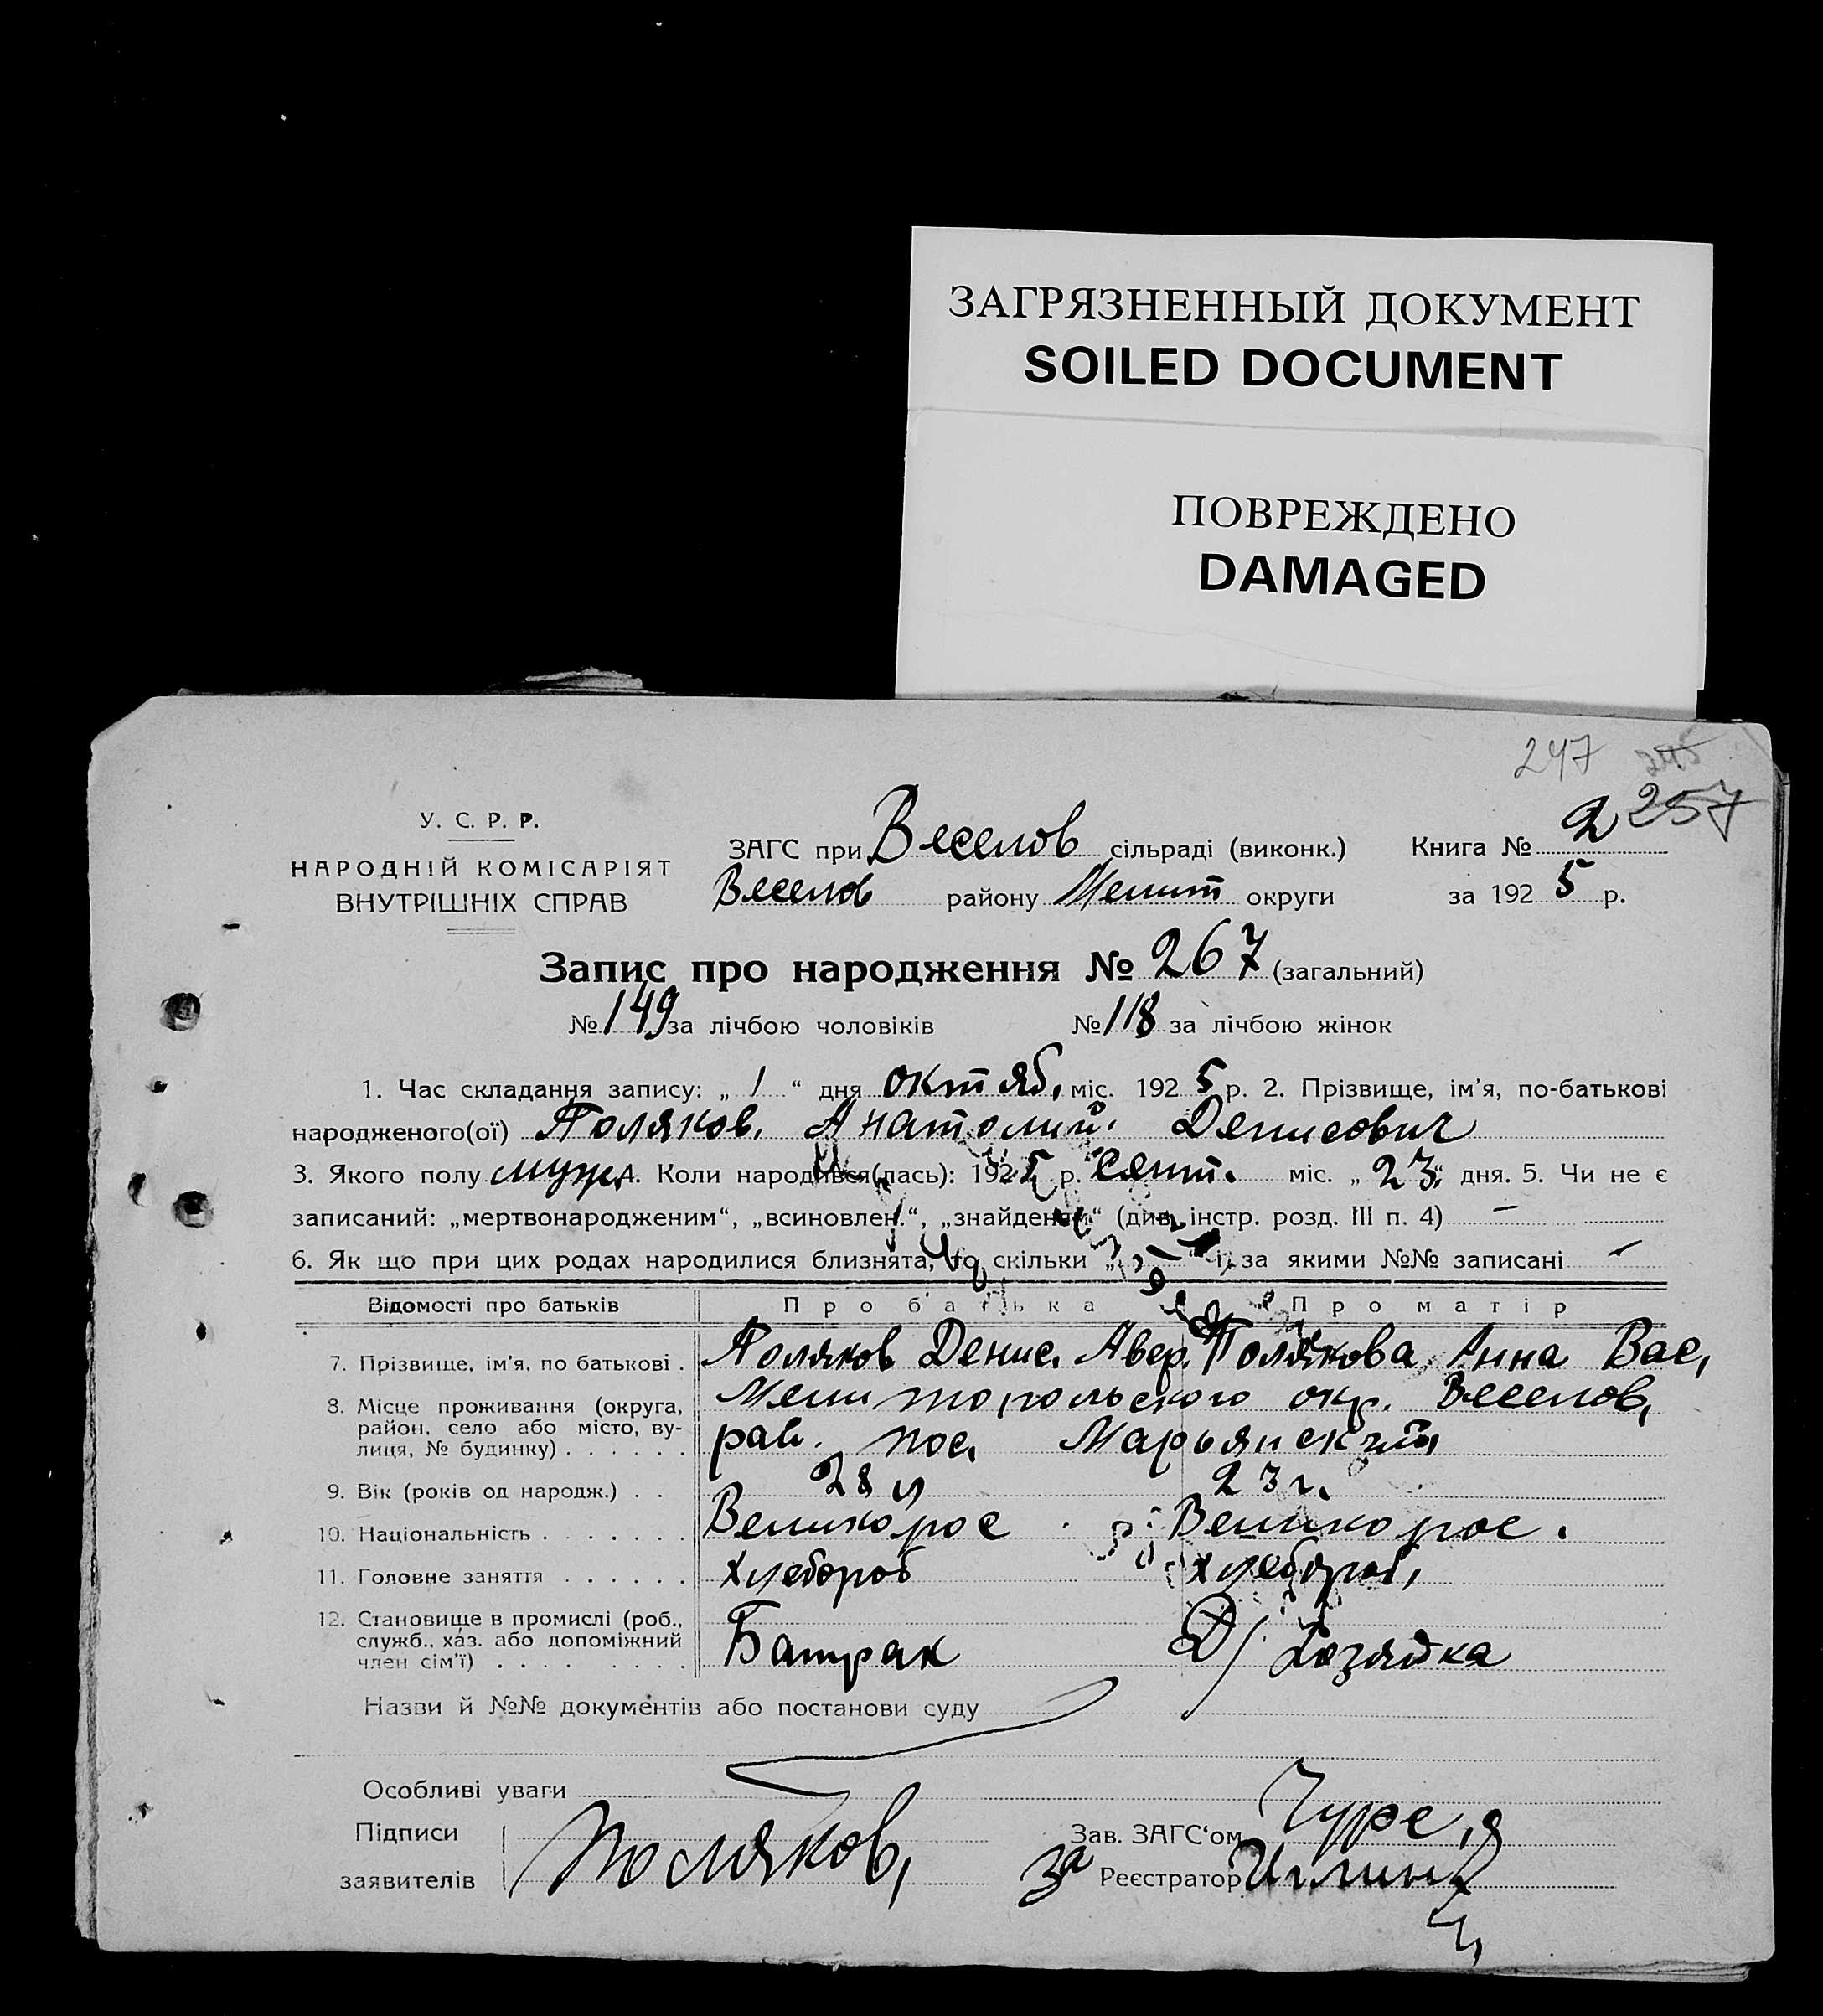 ЗАГРЯЗНЕННЫЙ ДОКУМЕНТ
SOILED DOCUMENT
ПОВРЕЖДЕНО
DAMAGED
247
257
У. С. Р. Р.
НАРОДНІЙ КОМІСАРІЯТ
ВНУТРІШНІХ СПРАВ
ЗАГС при Веселов сільраді (виконк.) Книга № 2
Веселов району Мелит округи за 1925 р.
Запис про народження № 267 (загальний)
№ 149 за лічбою чоловіків № 118 за лічбою жінок
1. Час складання запису: „ 1 “ дня октяб, міс. 1925 р. 2. Прізвище, ім'я, по-батькові
народженого(ої) Поляков. Анатолий. Денисович
3. Якого полу муж. 4. Коли народився(лась): 1925 р. сент. міс. „ 23 “ дня. 5. Чи не є
записаний: „мертвонародженим“, „всиновлен.“, „знайденим“ (див. інстр. розд. III п. 4) —
6. Як що при цих родах народилися близнята, то скільки „ — “ і за якими №№ записані —
Відомості про батьків Про батька Про матір
7. Прізвище, ім'я, по батькові . Поляков Денис. Авер. Полякова, Анна Вас,
8. Місце проживання (округа, Мелитопольского окр. Веселов,
район, село або місто, ву-
лиця, № будинку) . . . . . . рай. пос. Марьянский
9. Вік (років од народж.) . . 28 л 23 г.
10. Національність . . . . . . . Великорос Великорос.
11. Головне заняття . . . . . . Хлебороб хлебороб,
12. Становище в промислі (роб.,
служб., хаз. або допоміжний Батрак Д/ Хозяйка
член сім'ї) . . . . . . . .
Назви й №№ документів або постанови суду
Особливі уваги
Підписи Зав. ЗАГС'ом
заявителів Поляков, За Реєстратор